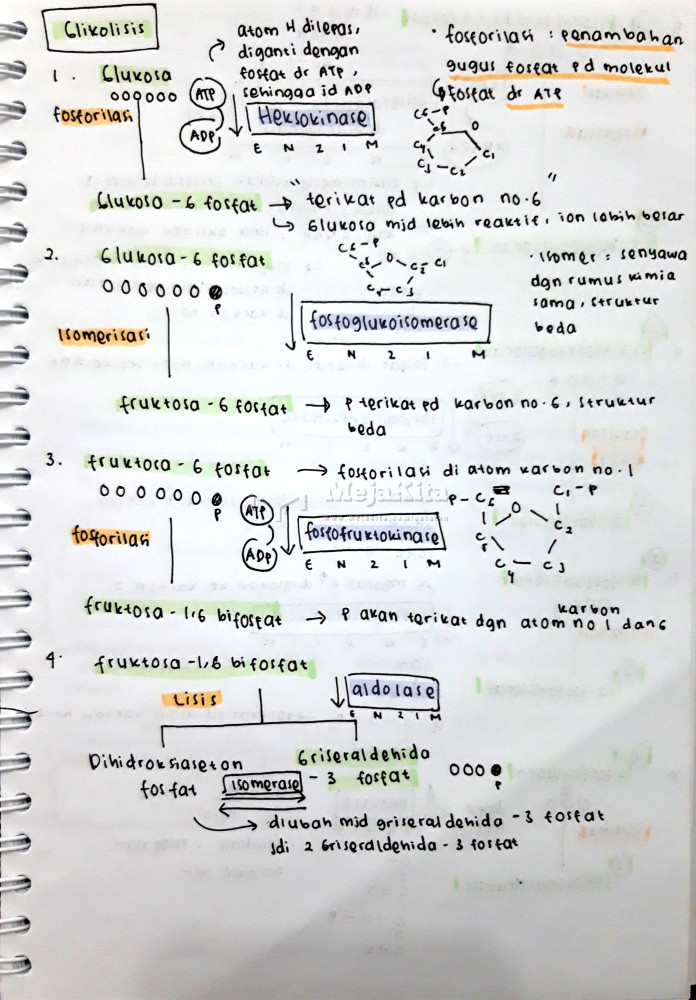 Glikolisis
atom H dilepas,
diganti dengan
fosfat dr ATP,
sehingga jd ADP
• fosforilasi : penambahan
gugus fosfat pd molekul
↳ fosfat dr ATP
1. Glukosa
fosforilasi
ATP
ADP
Heksokinase
E N Z I M
C6 - P
C5 O
C4 C1
C3 - C2
Glukosa - 6 fosfat → " terikat pd karbon no. 6 "
↳ Glukosa mjd lebih reaktif, ion lebih besar
2. Glukosa - 6 fosfat
P
C6 - P
O C2 C1
C3
• Isomer : senyawa
dgn rumus kimia
sama, struktur
beda
Isomerisasi
fosfoglukoisomerase
E N Z I M
fruktosa - 6 fosfat → P terikat pd karbon no. 6, struktur
beda
3. fruktosa - 6 fosfat → fosforilasi di atom karbon no. 1
P
MejaKita
fosforilasi
ATP
ADP
fosfofruktokinase
E N Z I M
P - C6 C1 - P
O
C5 C2
C4 C3
fruktosa - 1,6 bifosfat → P akan terikat dgn atom karbon no 1 dan 6
4. fruktosa - 1,6 bifosfat
Lisis
aldolase
E N Z I M
Dihidroksiaseton
fosfat
isomerase
Griseraldehida
- 3 fosfat
P
→ diubah mjd griseraldehida - 3 fosfat
jdi 2 Griseraldehida - 3 fosfat